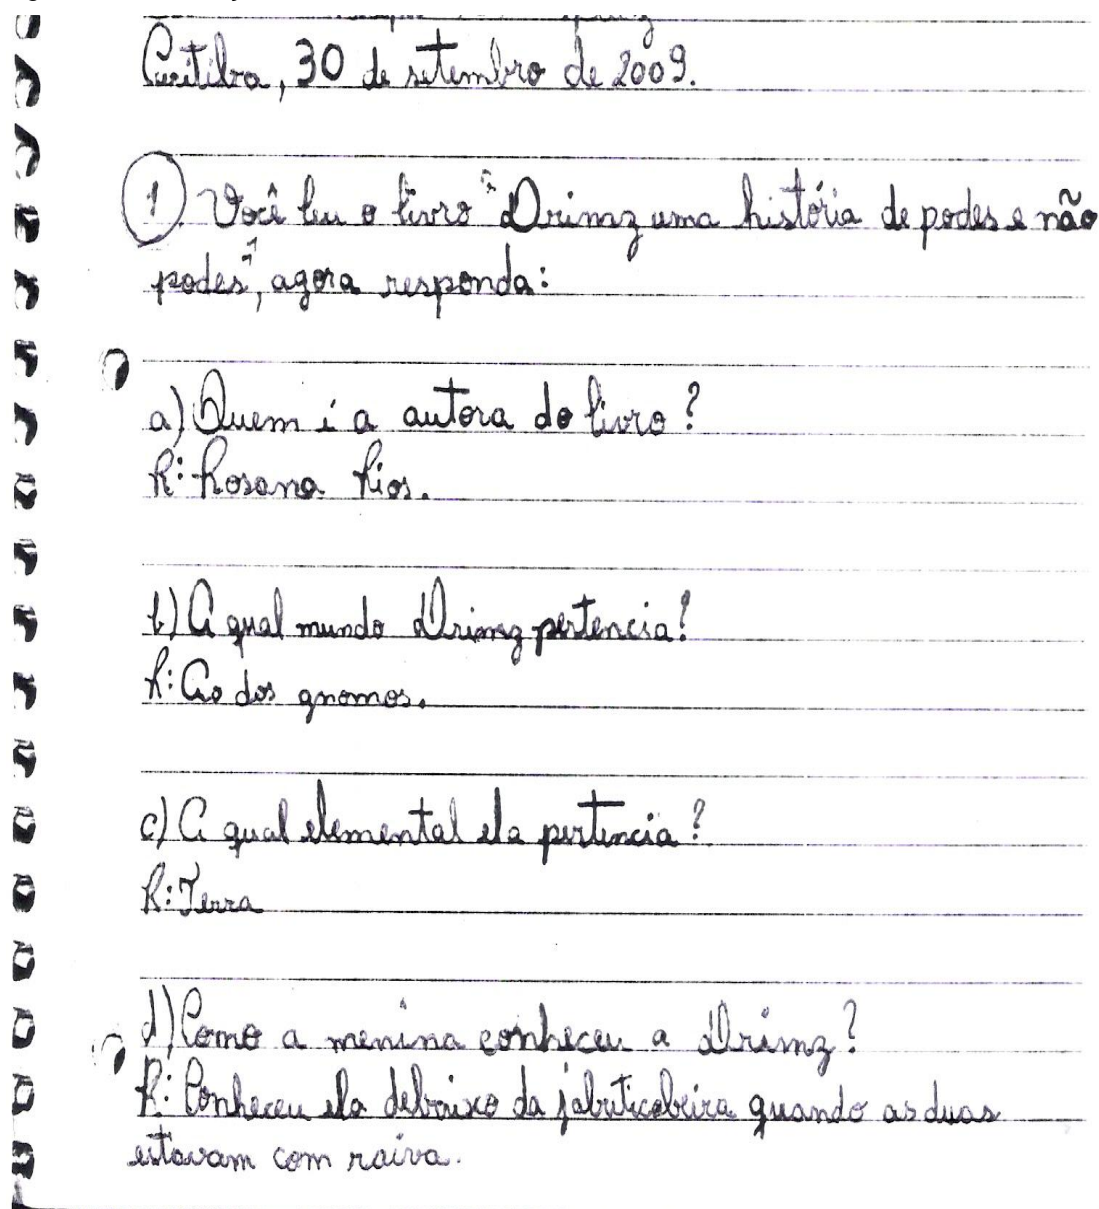 Curitiba, 30 de setembro de 2009.
1. Você leu o livro "Drimz uma história de podes e não
podes", agora responda:
a) Quem é a autora do livro?
R: Rosana Rios.
b) A qual mundo Drimz pertencia?
R: Ao dos gnomos.
c) A qual elemental ela pertencia?
R: Terra
d) Como a menina conheceu a Drimz?
R: Conheceu ela debaixo da jabuticabeira quando as duas
estavam com raiva.